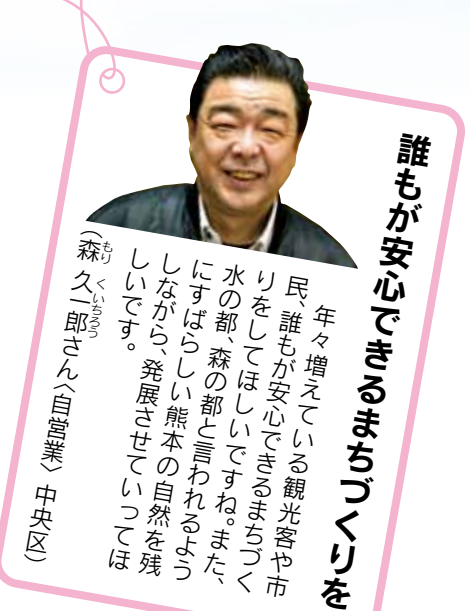 誰もが安心できるまちづくりを
年々増えている観光客や市
民、誰もが安心できるまちづく
りをしてほしいですね。また、
水の都、森の都と言われるよう
にすばらしい熊本の自然を残
しながら、発展させていってほ
しいです。
（森 久一郎さん〈自営業〉 中央区）
もり くいちろう